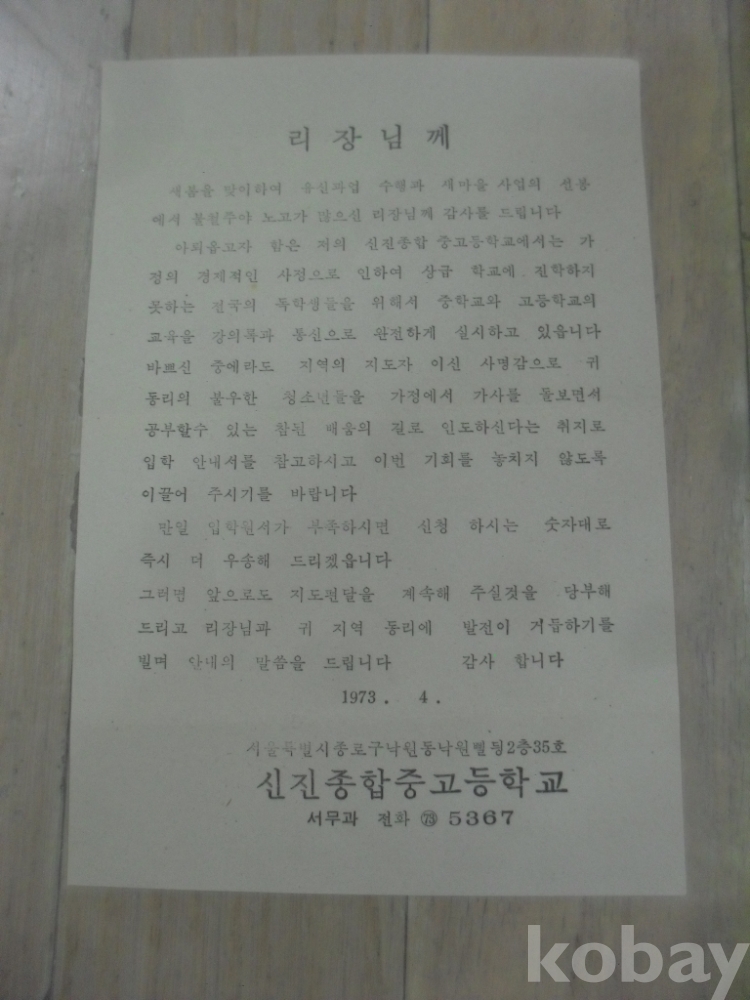 리장님께
새봄을 맞이하여 유신과업 수행과 새마을 사업의 선봉
에서 불철주야 노고가 많으신 리장님께 감사를 드립니다
아뢰옵고자 함은 저의 신진종합 중고등학교에서는 가
정의 경제적인 사정으로 인하여 상급 학교에 진학하지
못하는 전국의 독학생들을 위해서 중학교와 고등학교의
교육을 강의록과 통신으로 완전하게 실시하고 있읍니다
바쁘신 중에라도 지역의 지도자 이신 사명감으로 귀
동리의 불우한 청소년들을 가정에서 가사를 돌보면서
공부할수 있는 참된 배움의 길로 인도하신다는 취지로
입학 안내서를 참고하시고 이번 기회를 놓치지 않도록
이끌어 주시기를 바랍니다
만일 입학원서가 부족하시면 신청 하시는 숫자대로
즉시 더 우송해 드리겠읍니다
그러면 앞으로도 지도편달을 계속해 주실것을 당부해
드리고 리장님과 귀 지역 동리에 발전이 거듭하기를
빌며 안내의 말씀을 드립니다 감사 합니다
1973. 4.
서울특별시종로구낙원동낙원삘딩2층35호
신진종합중고등학교
서무과 전화 ㉮ 5367
kobay